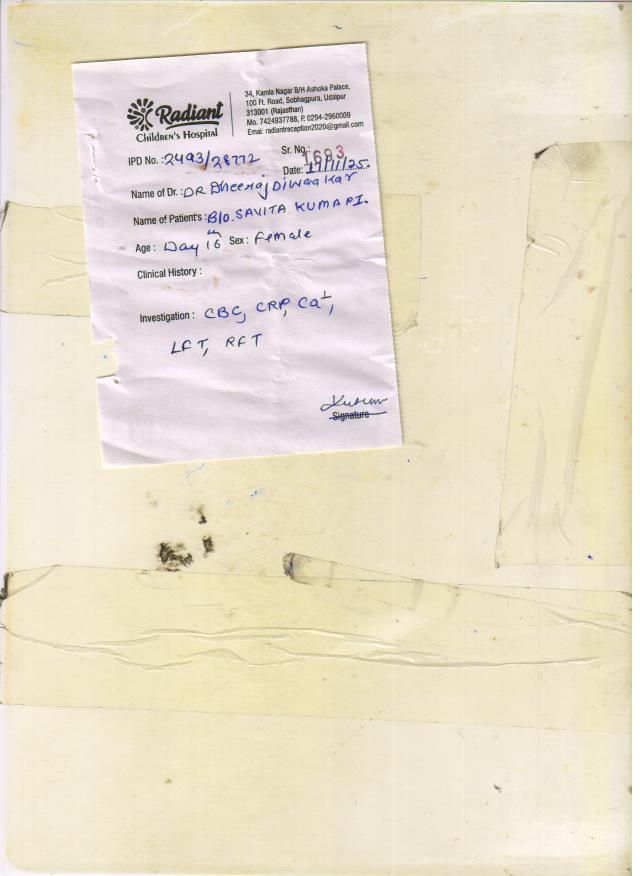 Radiant
Children's Hospital
34, Kamla Nagar B/H Ashoka Palace,
100 Ft. Road, Sobhagpura, Udaipur
313001 (Rajasthan)
Mo. 7424937788, P. 0294-2960009
Email: radiantreception2020@gmail.com
IPD No. : 2493/28772
Sr. No. : 1693
Date: 17/11/25.
Name of Dr. : DR Dheeraj Diwaakar
Name of Patient's : B/O. SAVITA KUMARI.
Age : Day 16 Sex : Female
Clinical History :
Investigation : CBC, CRP, Ca⊥,
LFT, RFT
Signature